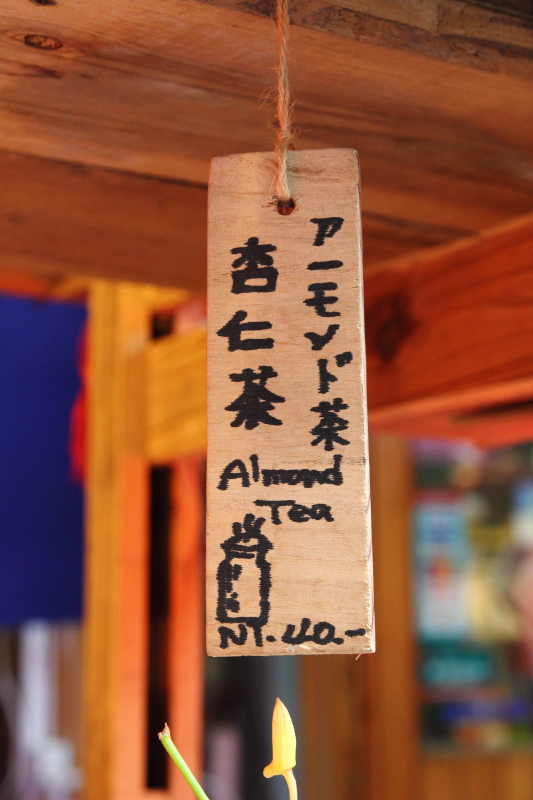 アーモンド茶
杏仁茶
Almond
Tea
NT.40.-